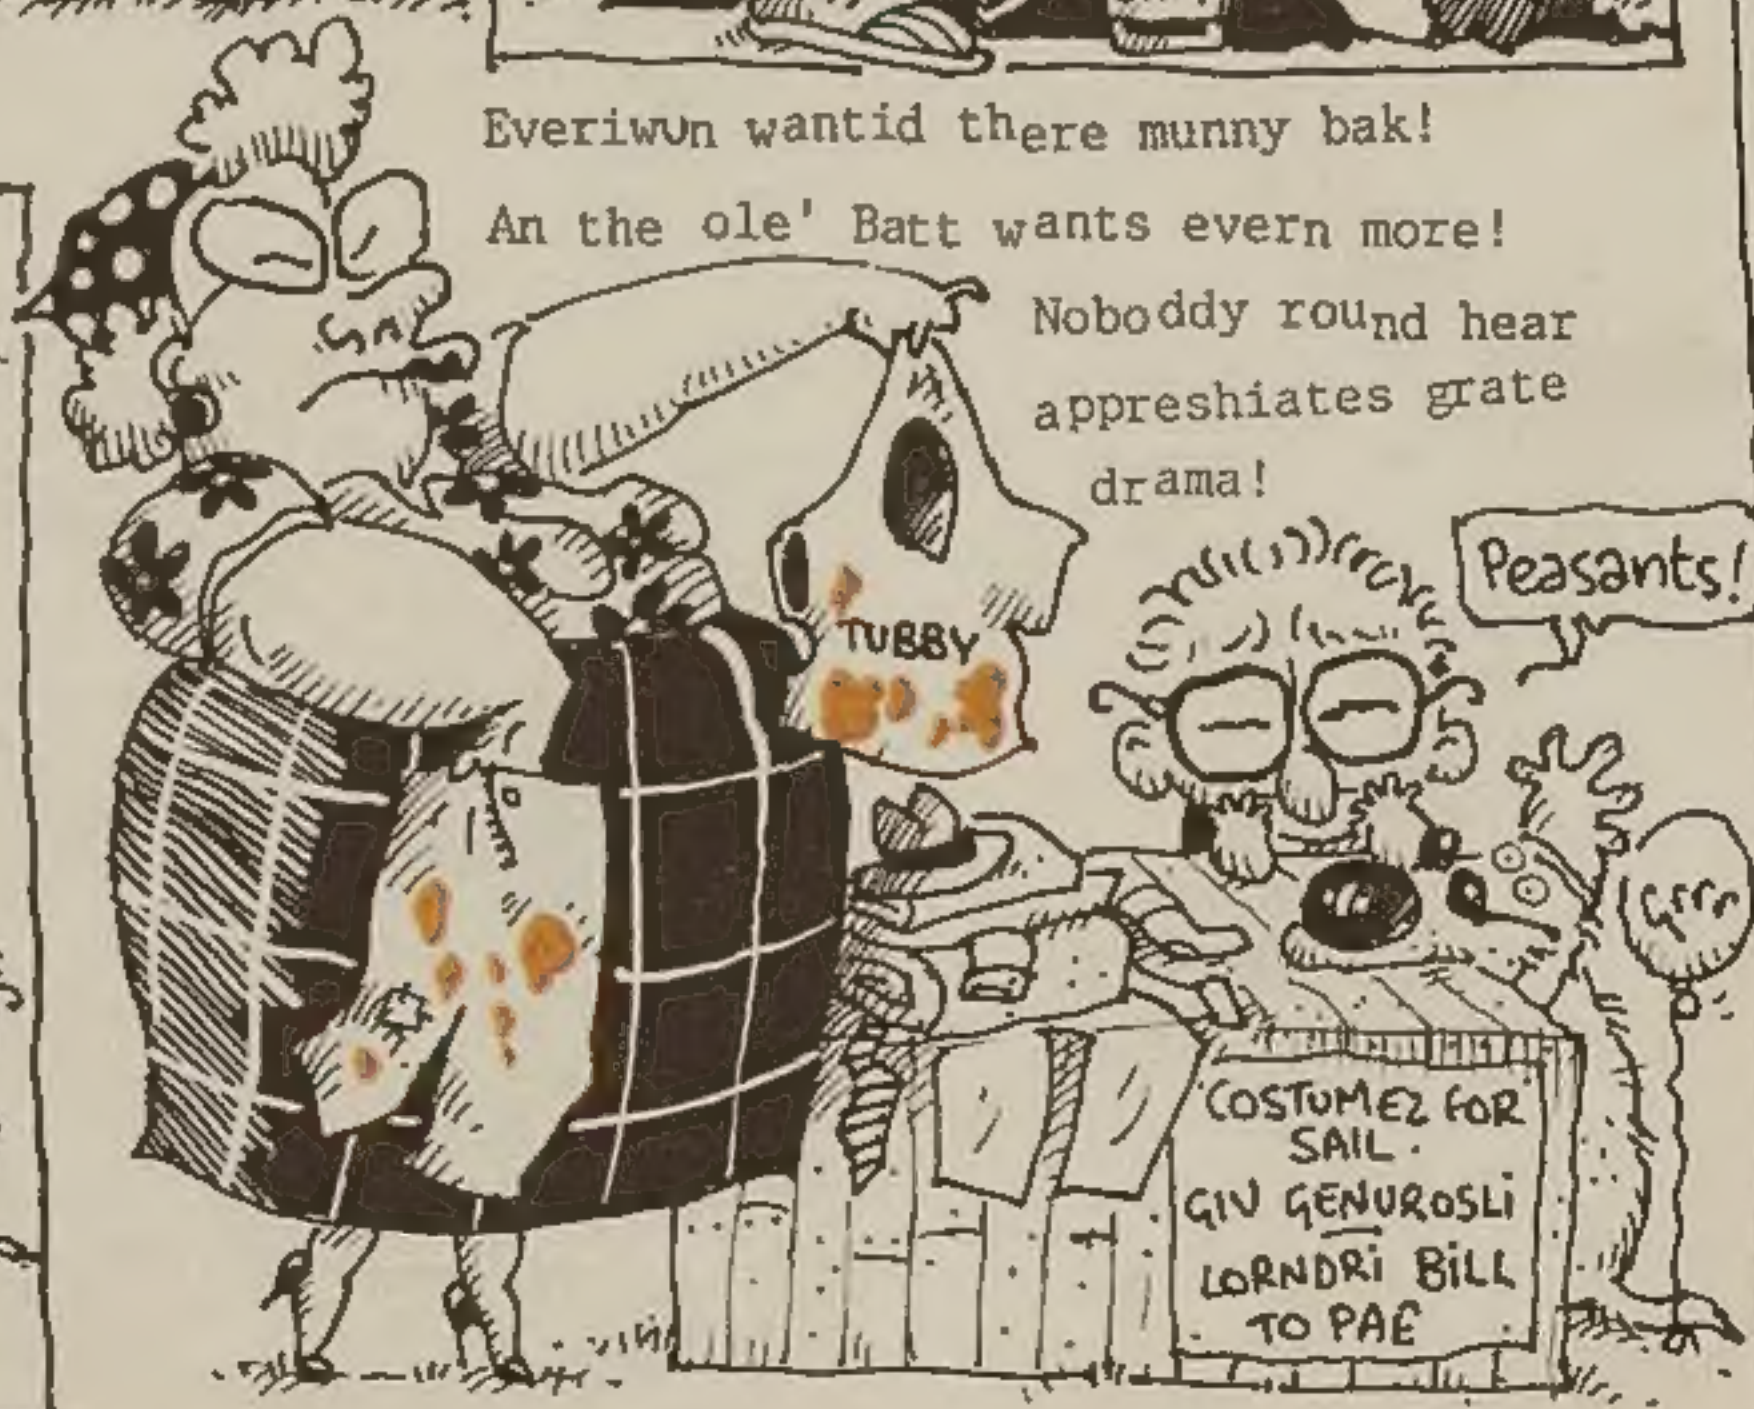 Everiwun wantid there munny bak!
An the ole' Batt wants evern more!
Noboddy round hear
appreshiates grate
drama!
Peasants!
TUBBY
Grrr
COSTUMEZ FOR
SAIL.
GIV GENUROSLi
LORNDRi BiLL
TO PAE